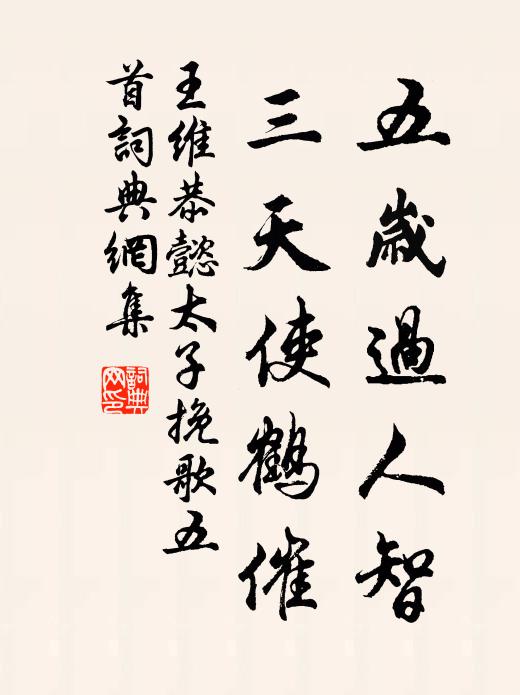 五歲過人智
三天使鶴催
王維恭懿太子挽歌五
首詞典網集
詞典
网印